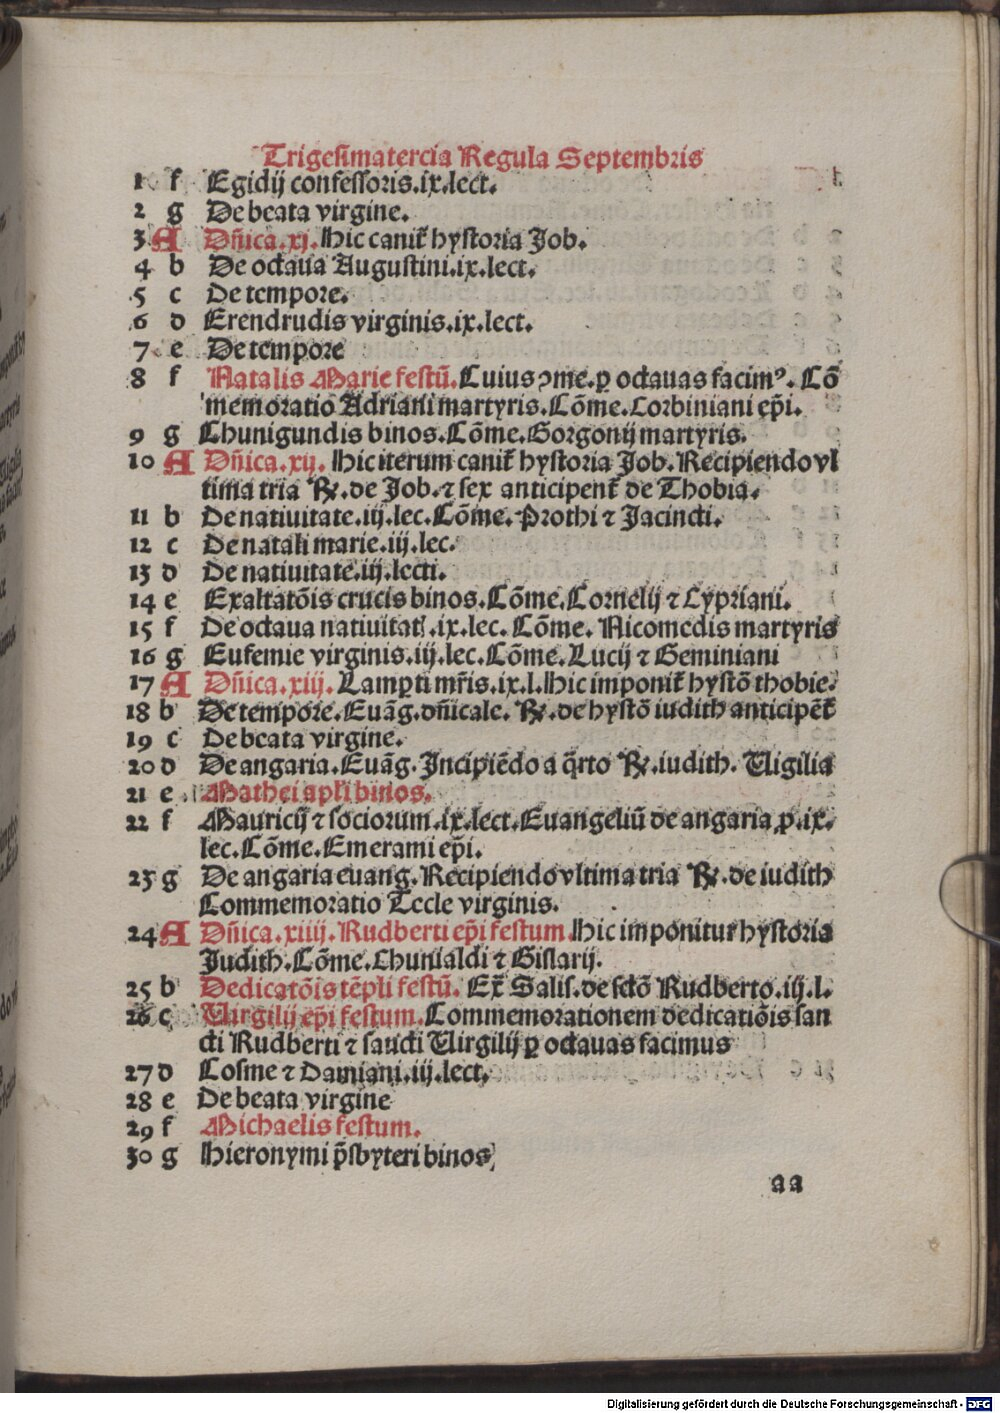 Trigesimatercia Regula Septembris
1 f Egidij confessoris.ix.lect.
2 g De beata virgine.
3 A Dñica.xj. Hic canit᷑ hystoria Job.
4 b De octaua Augustini.ix.lect.
5 c De tempore.
6 d Erendrudis virginis.ix.lect.
7 e De tempore
8 f Natalis Marie festū. Cuius ꝯme.ꝑ octauas facimꝰ. Cō
memoratio Adriani martyris. Cōme. Corbiniani ep̄i.
9 g Chunigundis binos. Cōme. Gorgonij martyris.
10 A Dñica.xij. Hic iterum canit᷑ hystoria Job. Recipiendo vl
tima tria ℟. de Job. ⁊ sex anticipent᷑ de Thobia.
11 b De natiuitate.iij.lec. Cōme. Prothi ⁊ Jacincti.
12 c De natali marie.iij.lec.
13 d De natiuitate.iij.lecti.
14 e Exaltatōis crucis binos. Cōme. Cornelij ⁊ Cypriani.
15 f De octaua natiuitatꝭ.ix.lec. Cōme. Nicomedis martyris
16 g Eufemie virginis.iij.lec. Cōme. Lucij ⁊ Geminiani
17 A Dñica.xiij. Lamꝑti mr̄is.ix.l. Hic imponit᷑ hystō thobie.
18 b De tempore. Euāg. dñicale. ℟. de hystō iudith anticipēt᷑
19 c De beata virgine.
20 d De angaria. Euāg. Incipiēdo a q̄rto ℟. iudith. Vigilia
21 e Mathei apl̄i binos.
22 f Mauricij ⁊ sociorum.ix.lect. Euangeliū de angaria ꝓ.ix.
lec. Cōme. Emerami ep̄i.
23 g De angaria euang. Recipiendo vltima tria ℟. de iudith
Commemoratio Tecle virginis.
24 A Dñica.xiiij. Rudberti ep̄i festum. Hic imponitur hystoria
Judith. Cōme. Chunialdi ⁊ Gislarij.
25 b Dedicatōis tēpli festū. Ex̄ Salis. de sctō Rudberto.iij.l.
26 c Virgilij ep̄i festum. Commemorationem dedicatiōis san
cti Rudberti ⁊ sancti Virgilij ꝑ octauas facimus
27 d Cosme ⁊ Damiani.iij.lect.
28 e De beata virgine
29 f Michaelis festum.
30 g Hieronymi p̄sbyteri binos
aa
Digitalisierung gefördert durch die Deutsche Forschungsgemeinschaft - DFG